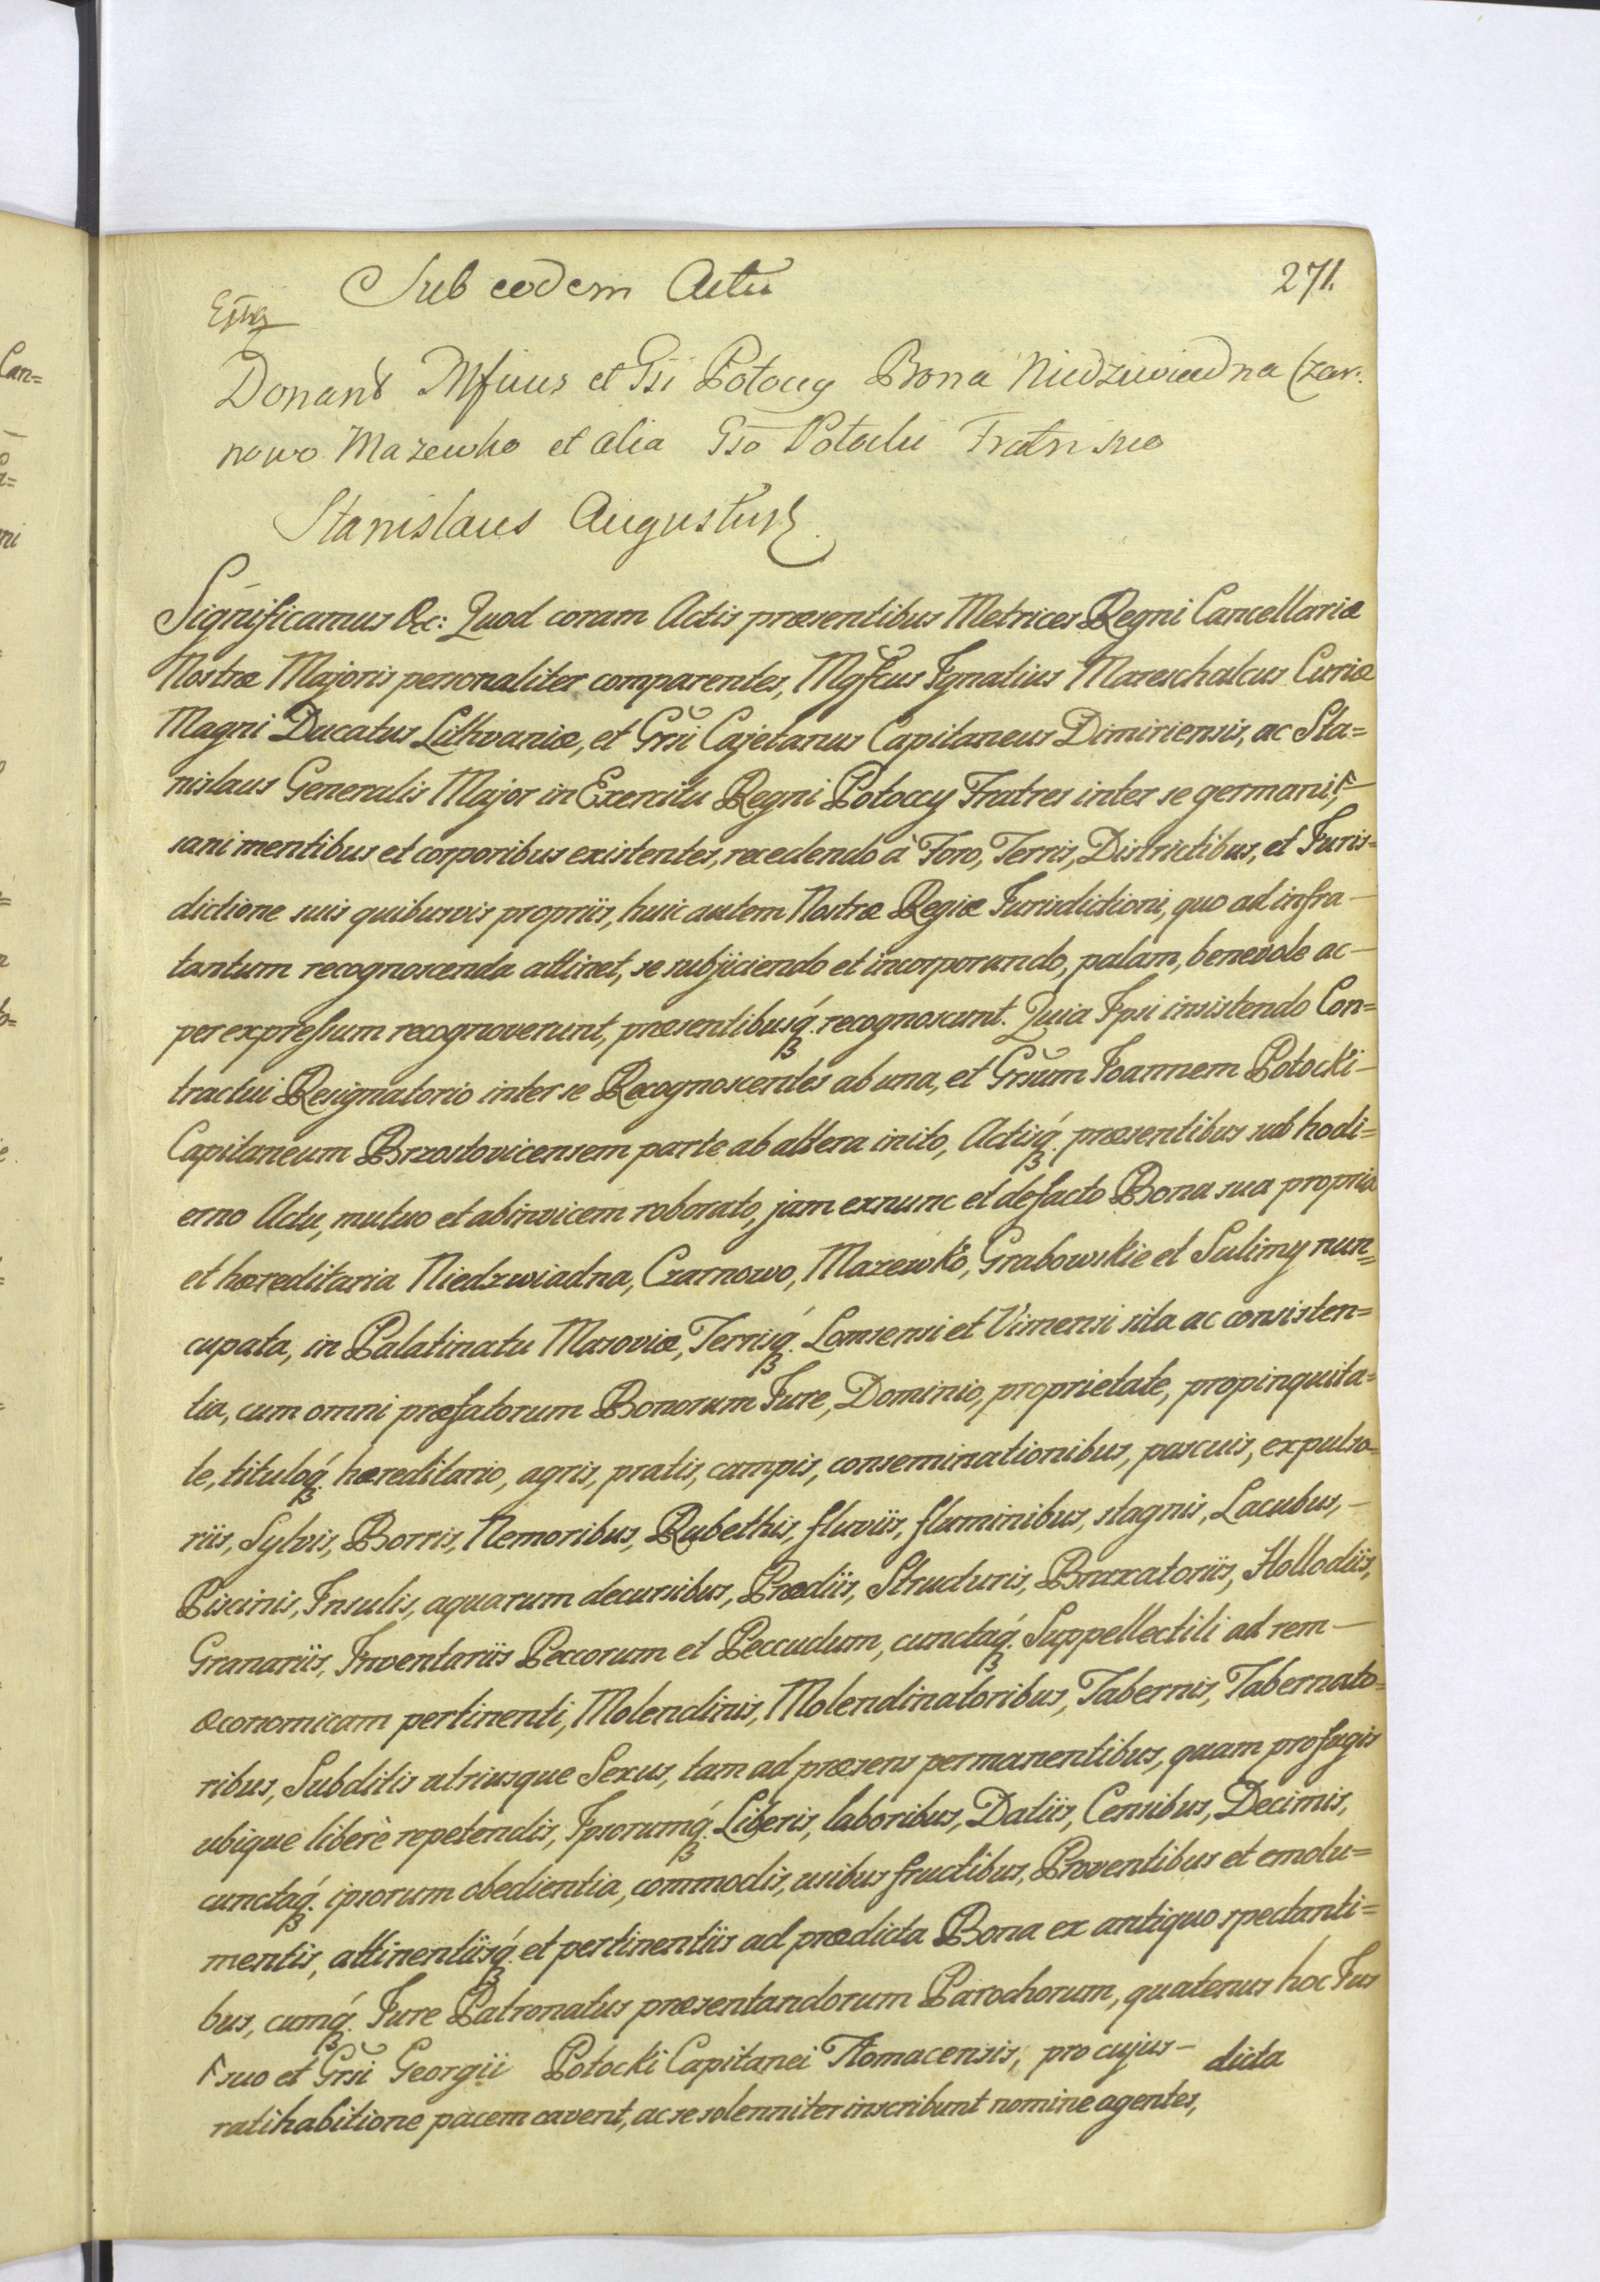 271.
Sub eodem Actu
Donant Mfcus et Gsi Potoccy Bona Niedzwiadna Czar:
nowo Mazewko et alia Gso Potocki Fratri suo
Stanislaus Augustus
Significamus &c: Quod coram Actis præsentibus Metrices Regni Cancellariæ
Nostræ Majoris personaliter comparentes, Mgfcus Ignatius Mareschalcus Curiæ
Magni Ducatus Lithvaniæ, et Grsi Cajetanus Capitaneus Dimiriensis, ac Sta=
nislaus Generalis Major in Exercitu Regni Potoccy Fratres inter se germani,
sani mentibus et corporibus existentes, recedendo à Foro, Terris, Districtibus, et Juris=
dictione suis quibusvis propriis, huic autem Nostræ Regiæ Jurisdictioni, quo ad infra
tantum recognoscenda attinet, se subjiciendo et incorporando, palam, benevole ac
per expressum recognoverunt, præsentibusq́. recognoscunt. Quia Ipsi insistendo Con=
tractui Resignatorio inter se Recognoscentes ab una, et Grsum Joannem Potocki
Capitaneum Brzostovicensem parte ab altera inito, Actisq́. præsentibus sub hodi=
erno Actu, mutuo et abinvicem roborato, jam exnunc et defacto Bona sua propria
et hæreditaria Niedzwiadna, Czarnowo, Mazewko, Grabowskie et Sulimy nun=
cupata, in Palatinatu Masoviæ, Terrisq́. Lomsensi et Visnensi sita ac consisten=
tia, cum omni præfatorum Bonorum Jure, Dominio, proprietate, propinquita=
te, tituloq́. hæreditario, agris, pratis, campis, conseminationibus, pascuis, expulso=
riis, Sylvis, Borris, Nemoribus, Rubethis, fluviis, fluminibus, stagnis, Lacubus,
Piscinis, Insulis, aquarum decursibus, Prædiis, Structuris, Braxatoriis, Hollodiis,
Granariis, Inventariis Peccorum et Peccudum, cunctaq́. Suppellectili ad rem
œconomicam pertinenti, Molendinis, Molendinatoribus, Tabernis, Tabernato=
ribus, Subditis utriusque Sexus, tam ad præsens permanentibus, quam profugis
ubique liberè repetendis, Ipsorumq́. Liberis, laboribus, Datiis, Censibus, Decimis,
cunctaq́. ipsorum obedientia, commodis, usibus fructibus, Proventibus et emolu=
mentis, attinentiisq́. et pertinentiis ad prædicta Bona ex antiquo spectanti=
bus, cumq́. Jure Patronatus præsentandorum Parochorum, quatenus hoc Jus
suo et Grsi Georgii Potocki Capitanei Tłomacensis, pro cujus
ratihabitione pacem cavent, ac se solenniter inscribunt nomine agentes,
dicta